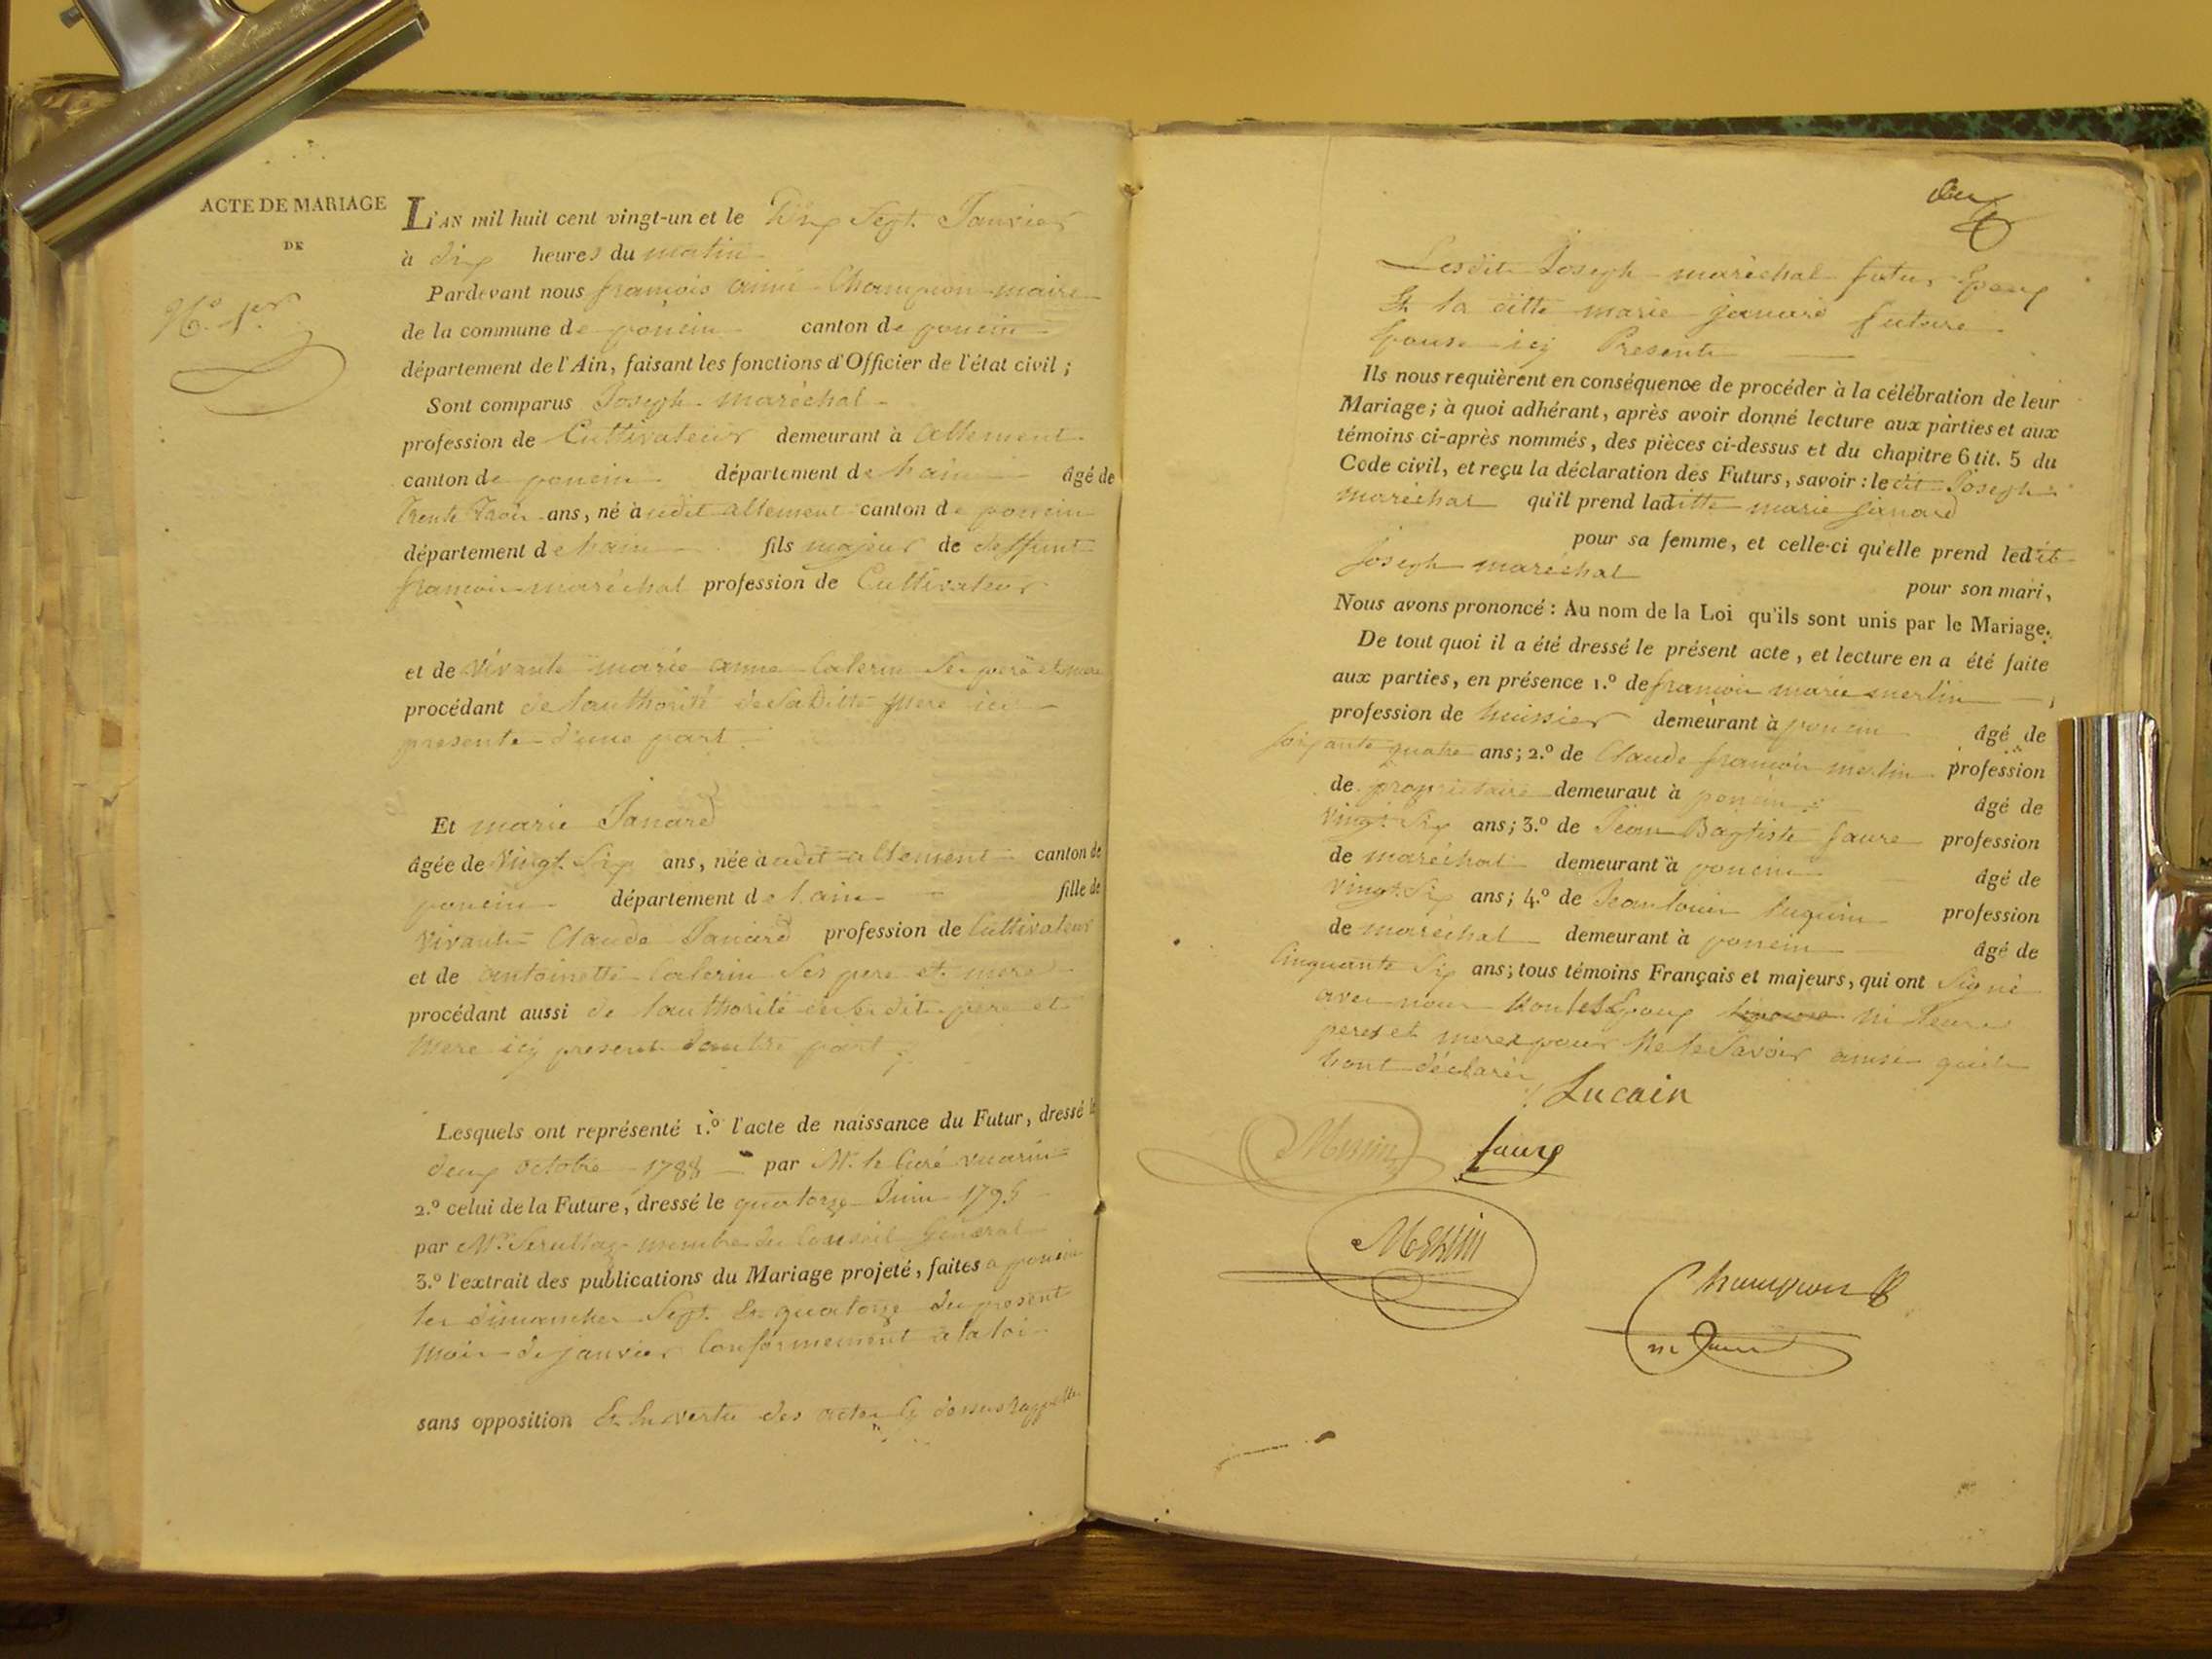 ACTE DE MARIAGE
DE
N.º 1.er
L'AN mil huit cent vingt-un et le Dix Sept Janvier
à dix heures du matin
Pardevant nous françois aimé Champion maire
de la commune de poncin canton de poncin
département de l'Ain, faisant les fonctions d'Officier de l'état civil ;
Sont comparus Joseph maréchal
profession de Cultivateur demeurant à allement
canton de poncin département de lain âgé de
trente trois ans, né audit allement canton de poncin
département de lain fils majeur de deffunt
françois maréchal profession de Cultivateur
et de vivante marie anne Caterin ses père et mere
procédant de lauthorité de saditte mere ici
presente d'une part
Et marie Janard
âgée de vingt Six ans, née audit allement canton de
poncin département de lain fille de
vivants Claude Janard profession de Cultivateur
et de antoinette Caterin ses pere et mere
procédant aussi de lauthorité de sesdits pere et
mere icy present dautre part
Lesquels ont représenté 1.º l'acte de naissance du Futur, dressé le
deux octobre 1788 par Mr. le Curé
2.º celui de la Future, dressé le quatorze Juin 1795
par Mr. membre du Conseil Général
3.º l'extrait des publications du Mariage projeté, faites a poncin
les dimanches Sept Et quatorze du present
mois de janvier Conformement a la loi
sans opposition Et En vertu des actes cy dessus rappellés
deux
Lesdits Joseph maréchal futur Epoux
Et la ditte marie janard future
Epouse icy Presente
Ils nous requièrent en conséquence de procéder à la célébration de leur
Mariage ; à quoi adhérant, après avoir donné lecture aux parties et aux
témoins ci-après nommés, des pièces ci-dessus et du chapitre 6 tit. 5 du
Code civil, et reçu la déclaration des Futurs, savoir : le dit Joseph
maréchal qu'il prend laditte marie janard
pour sa femme, et celle-ci qu'elle prend ledit
joseph maréchal pour son mari,
Nous avons prononcé : Au nom de la Loi qu'ils sont unis par le Mariage.
De tout quoi il a été dressé le présent acte, et lecture en a été faite
aux parties, en présence 1.º de françois marie merlin ,
profession de huissier demeurant à poncin âgé de
soixante quatre ans ; 2.º de Claude françois merlin profession
de proprietaire demeuraut à poncin âgé de
vingt Six ans ; 3.º de Jean Baptiste faure profession
de maréchal demeurant à poncin âgé de
vingt Six ans ; 4.º de Jean louis profession
de maréchal demeurant à poncin âgé de
Cinquante Six ans ; tous témoins Français et majeurs, qui ont Signé
avec nous non les Epoux ni leurs
peres et meres pour ne le Savoir ainsi quils
lont déclarér
Lucain
Merlin faure
Merlin
Champion